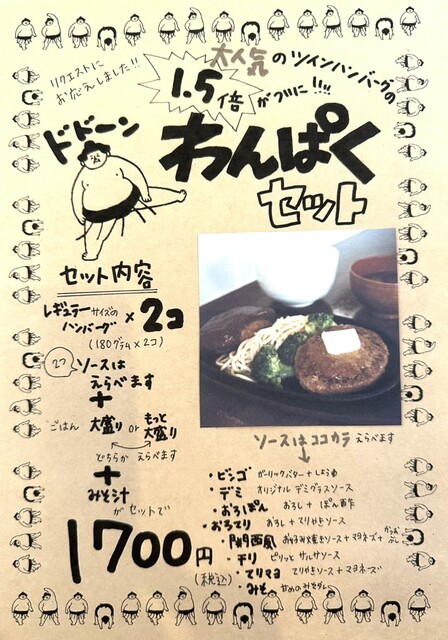 リクエストに
おこたえしました!!
大人気のツインハンバーグの
1.5倍がついに!!!
ドドーン
わんぱく
セット
セット内容
レギュラーサイズの
ハンバーグ ×2コ
(180グラム×2コ)
2コ ソースは
えらべます
+
ごはん 大盛り or もっと大盛り
どちらか えらべます
+
みそ汁
がセットで
1700円
(税込)
ソースはココカラえらべます
・ビンゴ ガーリックバター+しょうゆ
・デミ オリジナルデミグラスソース
・おろぽん おろし+ぽん酢
・おろてり おろし+てりやきソース
・関西風 お好み焼きソース+マヨネーズ+かつおぶし
・チリ ピリッとサルサソース
・てりマヨ てりやきソース+マヨネーズ
・みそ 甘めのみそダレ